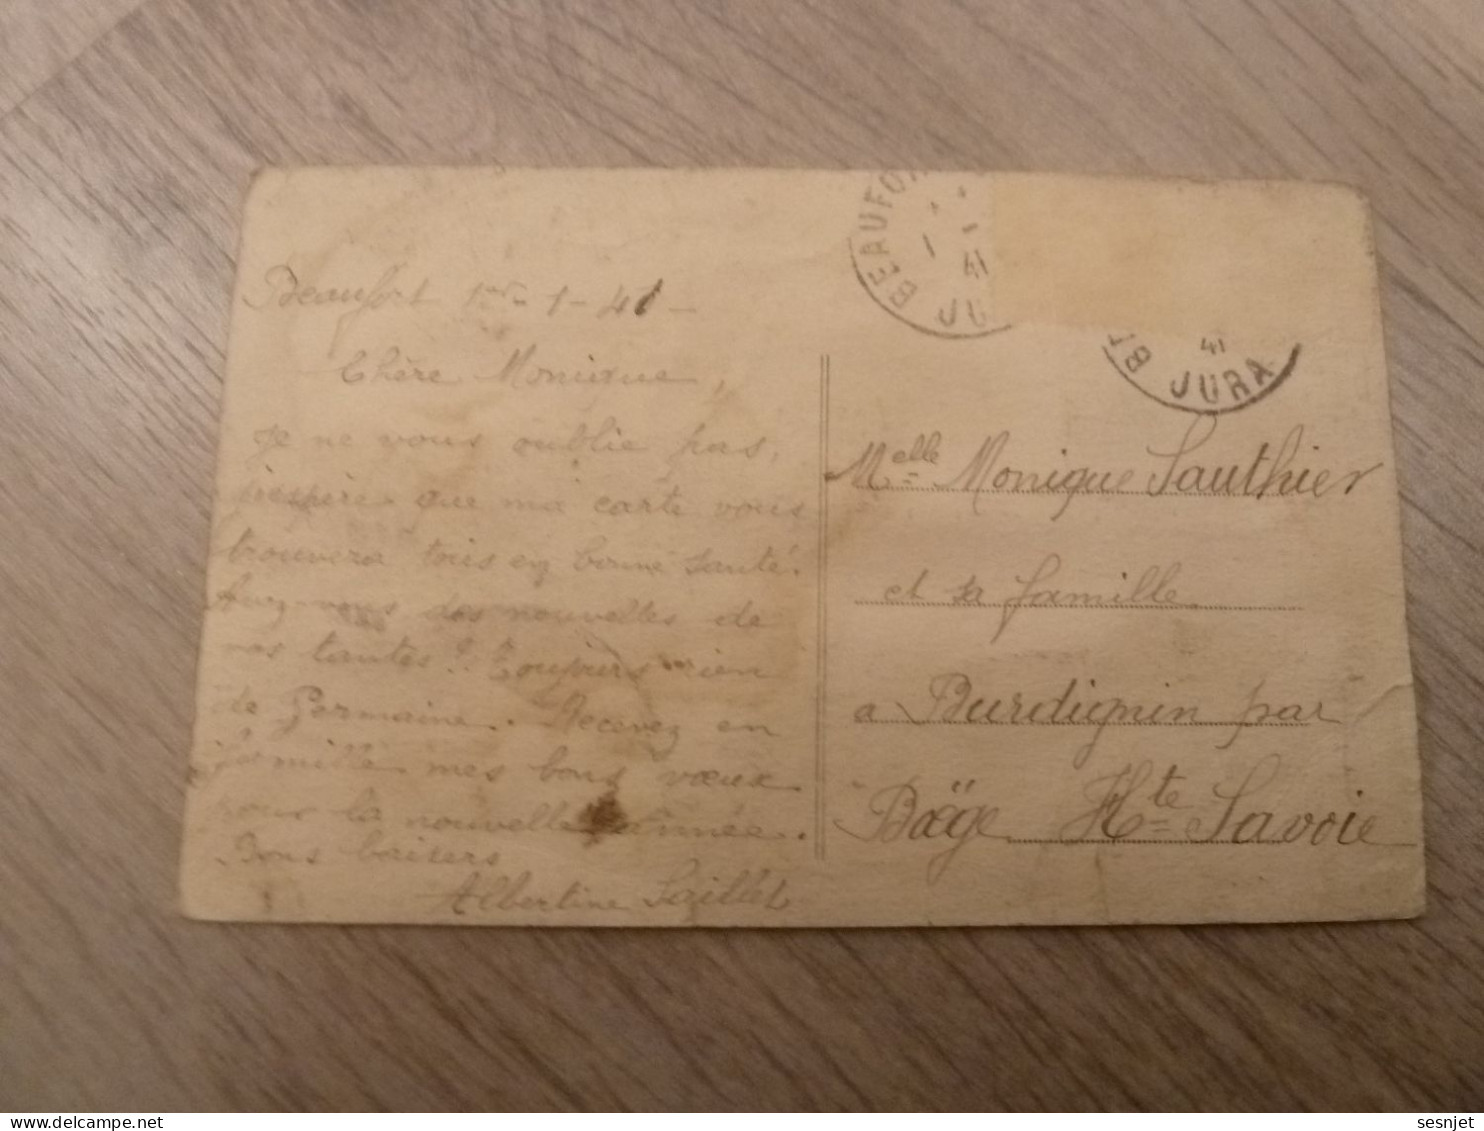 Beaufort 1er-1-41-
Chère Monique,
Je ne vous oublie pas,
j'espère que ma carte vous
trouvera tous en bonne santé.
Avez-vous des nouvelles de
vos tantes? Toujours rien
de Germaine. Recevez en
famille mes bons vœux
pour la nouvelle année.
Bons baisers
Albertine Saillet
BEAUFOR
1 -1
41
JU
BE
41
JURA
Melle Monique Sauthier
et sa famille
a Burdignin par
Boëge Hte Savoie
www.delcampe.net
sesnjet